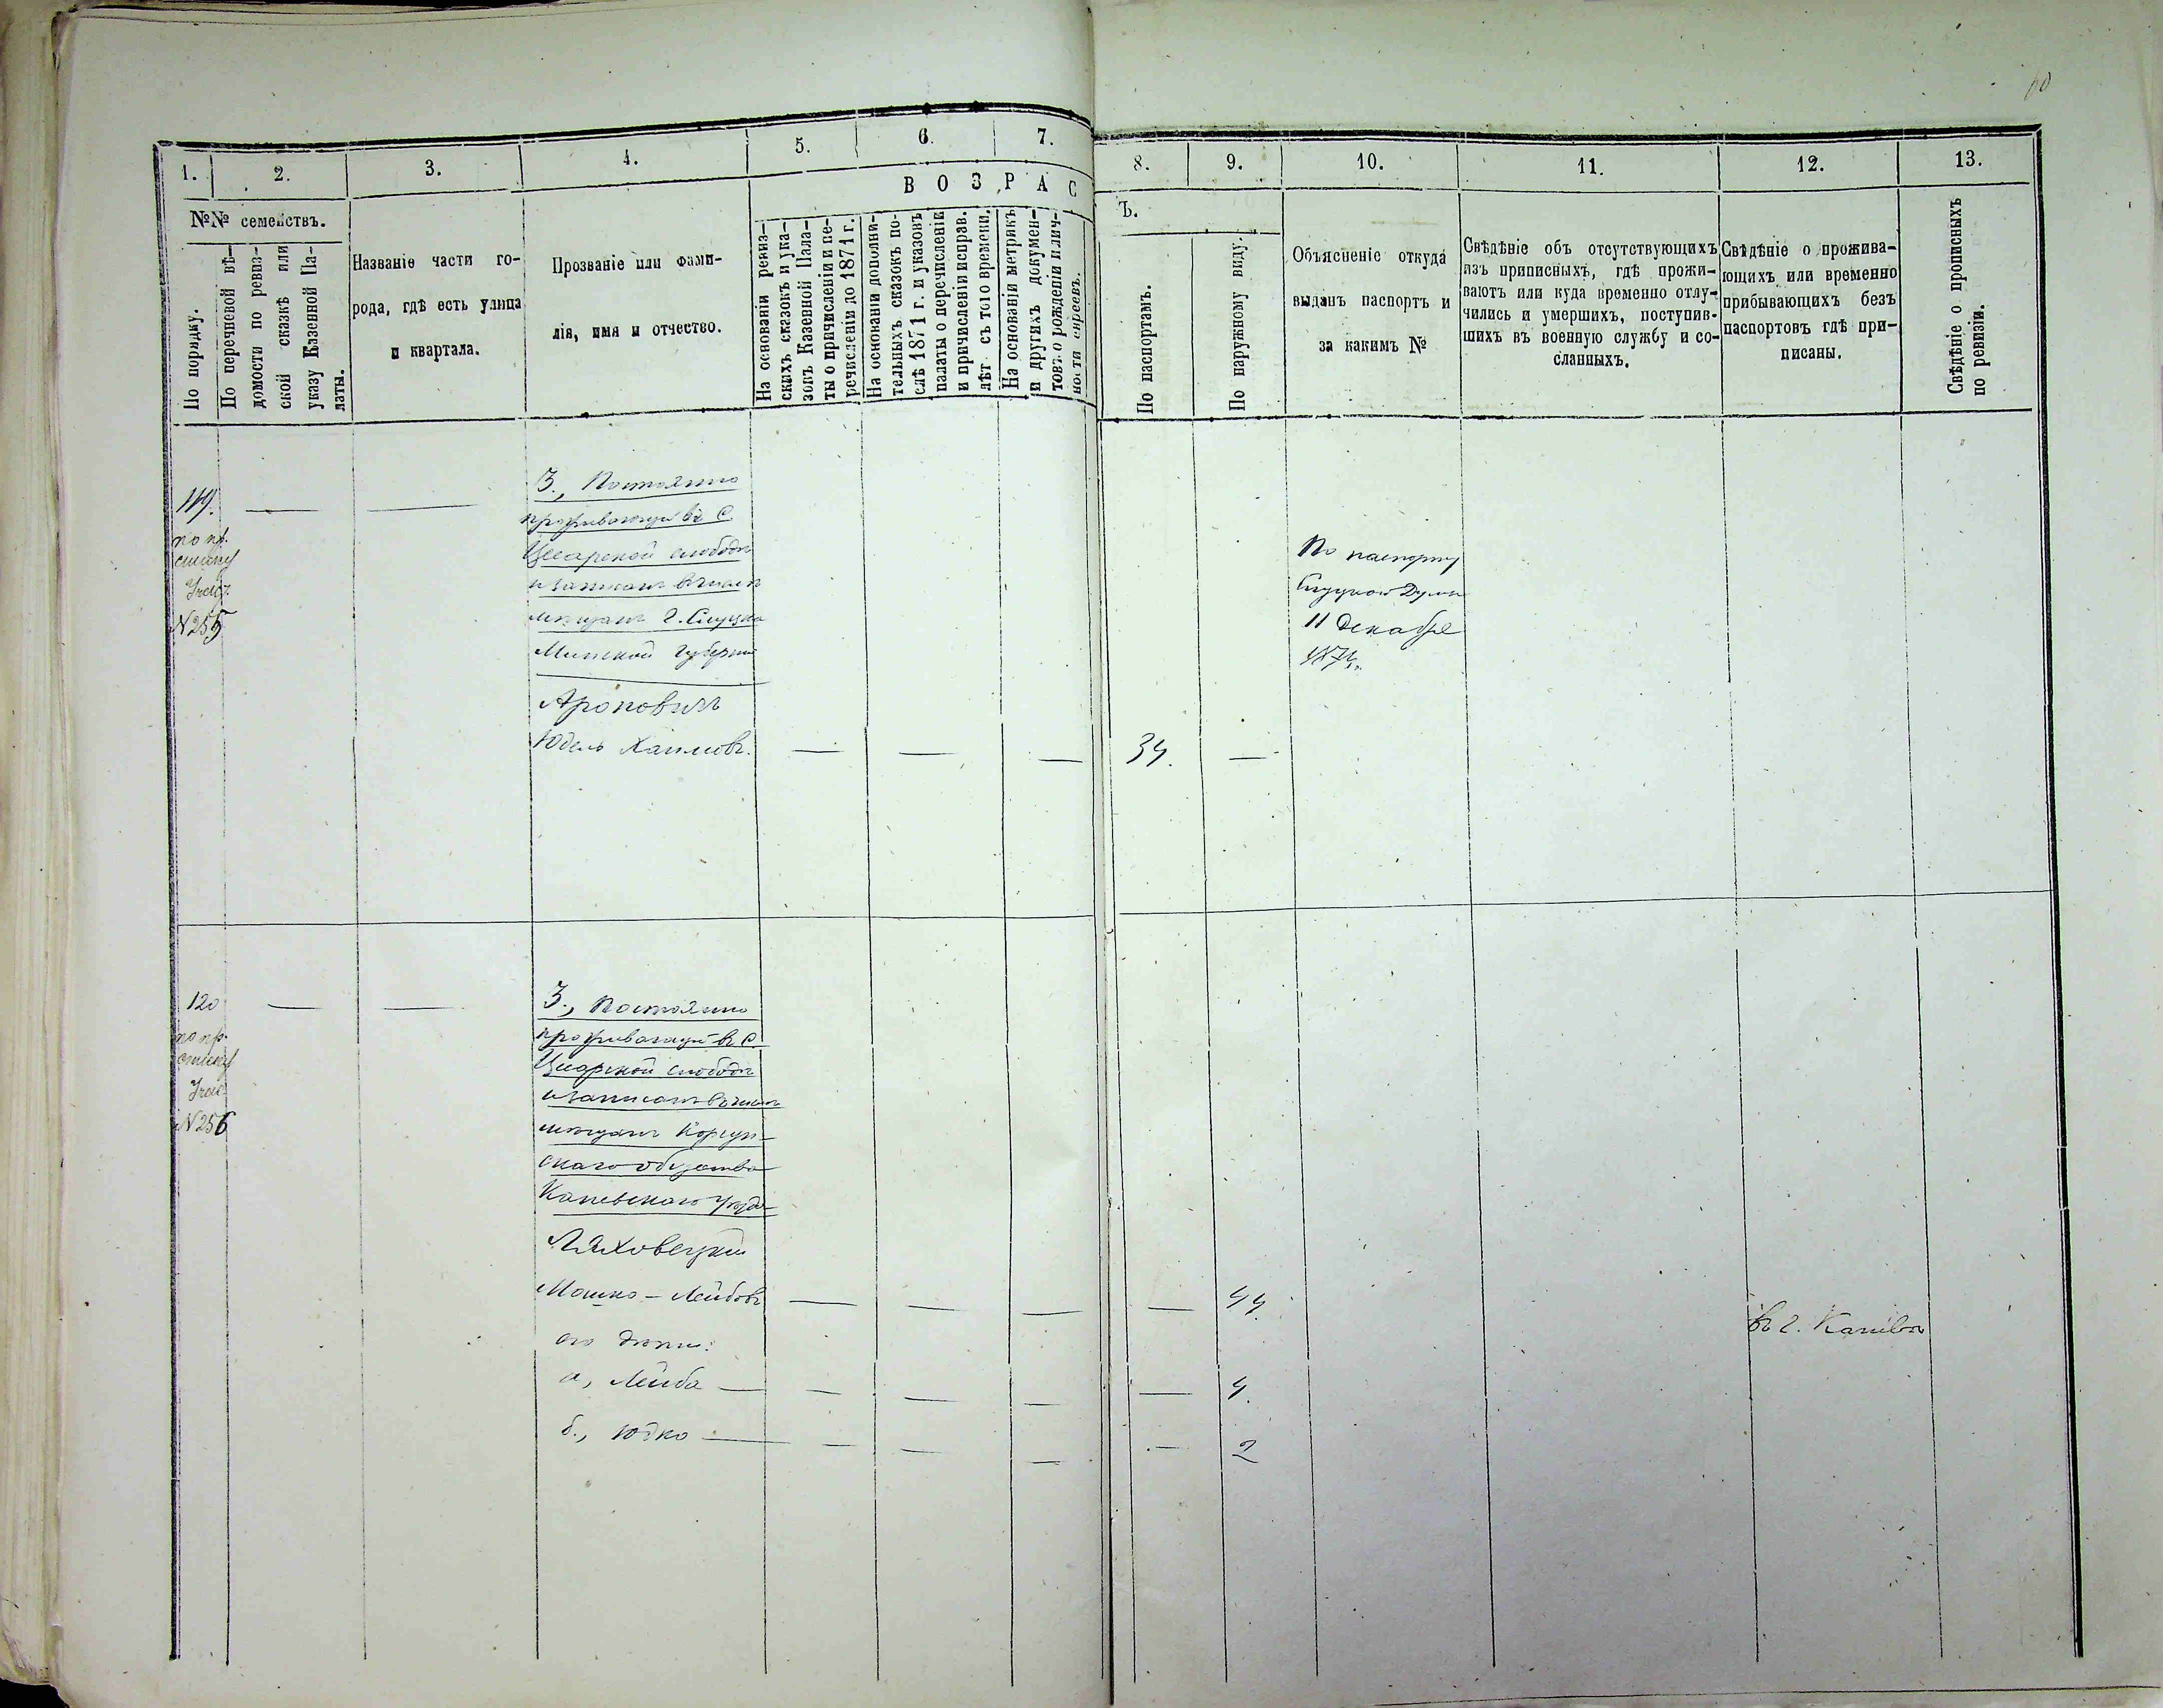 1.
2.
3.
4.
5.
6.
7.
8.
9.
10.
11.
12.
13.
ВОЗРАС
Ъ.
№№ семействъ.
По порядку.
По перечневой вѣ-
домости по ревиз-
ской сказкѣ или
указу Казенной Па-
латы.
Названіе части го-
рода, гдѣ есть улица
и квартала.
Прозваніе или фами-
лія, имя и отчество.
На основаніи ревиз-
скихъ сказокъ и ука-
зовъ Казенной Пала-
ты о причисленіи и пе-
речисленіи до 1871 г.
На основаніи дополни-
тельныхъ сказокъ по-
слѣ 1871 г. и указовъ
палаты о перечисленіи
и причисленіи исправ.
лѣт съ того времени.
На основаніи метрикъ
и другихъ докумен-
товъ о рожденіи и лич-
ности евреевъ.
По паспортамъ.
По наружному виду.
Объясненіе откуда
выданъ паспортъ и
за какимъ №
Свѣдѣніе объ отсутствующихъ
изъ приписныхъ, гдѣ прожи-
ваютъ или куда временно отлу-
чились и умершихъ, поступив-
шихъ въ военную службу и со-
сланныхъ.
Свѣдѣніе о прожива-
ющихъ или временно
прибывающихъ безъ
паспортовъ гдѣ при-
писаны.
Свѣдѣніе о прописныхъ
по ревизіи.
119.
по пр.
списку
N 255
3., Постоянно
проживающій въ С.
Цесарской слободѣ
и записанъ въ числѣ
мѣщанъ г. Слуцка
Минской губерніи
Ароновичъ
Юдель Хаимовъ.
34.
По паспорту
Слуцкой Думы
11 Декабря
1874.
120
по пр.
списку
N 256
3., Постоянно
проживающій въ С.
Цесарской слободѣ
и записанъ въ числѣ
мѣщанъ Корсун-
скаго общества
Каневскаго уѣзда
Ляховецкій
Мошко - Лейбовъ
44.
въ г. Каневѣ
его дѣти:
а, Лейба
4.
б., Юдко
2